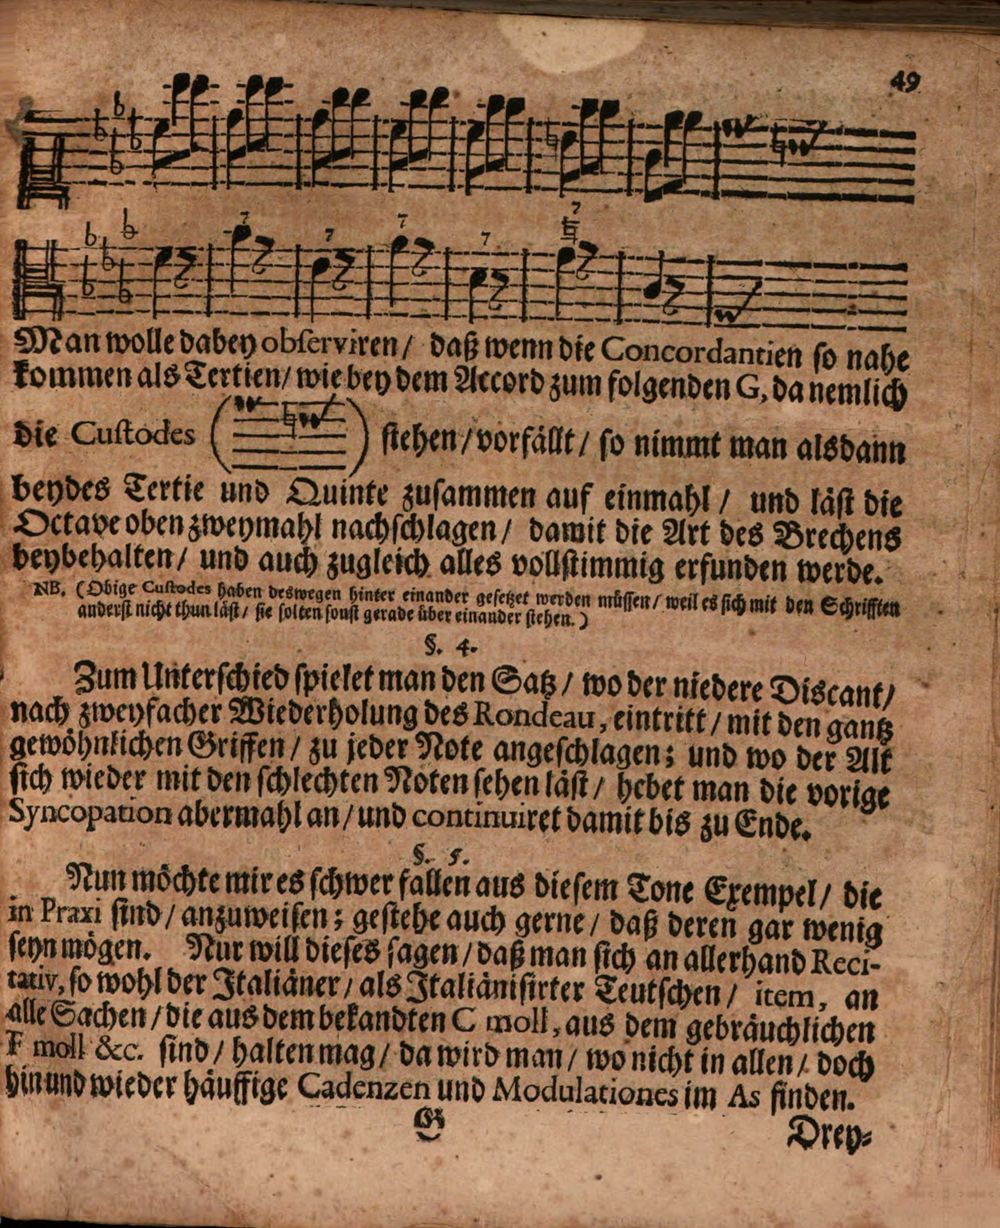 49
7 7 7 7 7
Man wolle dabey observiren / daß wenn die Concordantien so nahe
kommen als Tertien / wie bey dem Accord zum folgenden G, da nemlich
die Custodes ( ) stehen / vorfällt / so nimmt man alsdann
beydes Tertie und Quinte zusammen auf einmahl / und läst die
Octave oben zweymahl nachschlagen / damit die Art des Brechens
beybehalten / und auch zugleich alles vollstimmig erfunden werde.
NB. (Obige Custodes haben deswegen hinter einander gesetzet werden müssen / weil es sich mit den Schrifften
anderst nicht thun läst / sie solten sonst gerade über einander stehen.)
§. 4.
Zum Unterschied spielet man den Satz / wo der niedere Discant /
nach zweyfacher Wiederholung des Rondeau, eintritt / mit den gantz
gewöhnlichen Griffen / zu jeder Note angeschlagen; und wo der Alt
sich wieder mit den schlechten Noten sehen läst / hebet man die vorige
Syncopation abermahl an / und continuiret damit bis zu Ende.
§. 5.
Nun möchte mir es schwer fallen aus diesem Tone Exempel / die
in Praxi sind / anzuweisen; gestehe auch gerne / daß deren gar wenig
seyn mögen. Nur will dieses sagen / daß man sich an allerhand Reci-
tativ, so wohl der Italiäner / als Italiänisirter Teutschen / item, an
alle Sachen / die aus dem bekandten C moll, aus dem gebräuchlichen
F moll &c. sind / halten mag / da wird man / wo nicht in allen / doch
hin und wieder häuffige Cadenzen und Modulationes im As finden.
G
Drey-